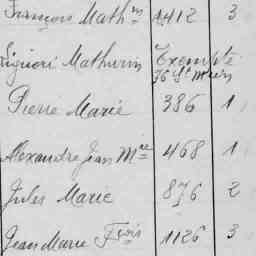 François Math^in 1412 3
Liguori Mathurin Exempté
76 St
Pierre Marie 386 1
Alexandre Jean M^ie 468 1
Jules Marie 876 2
Jean Marie Fçois 1126 3